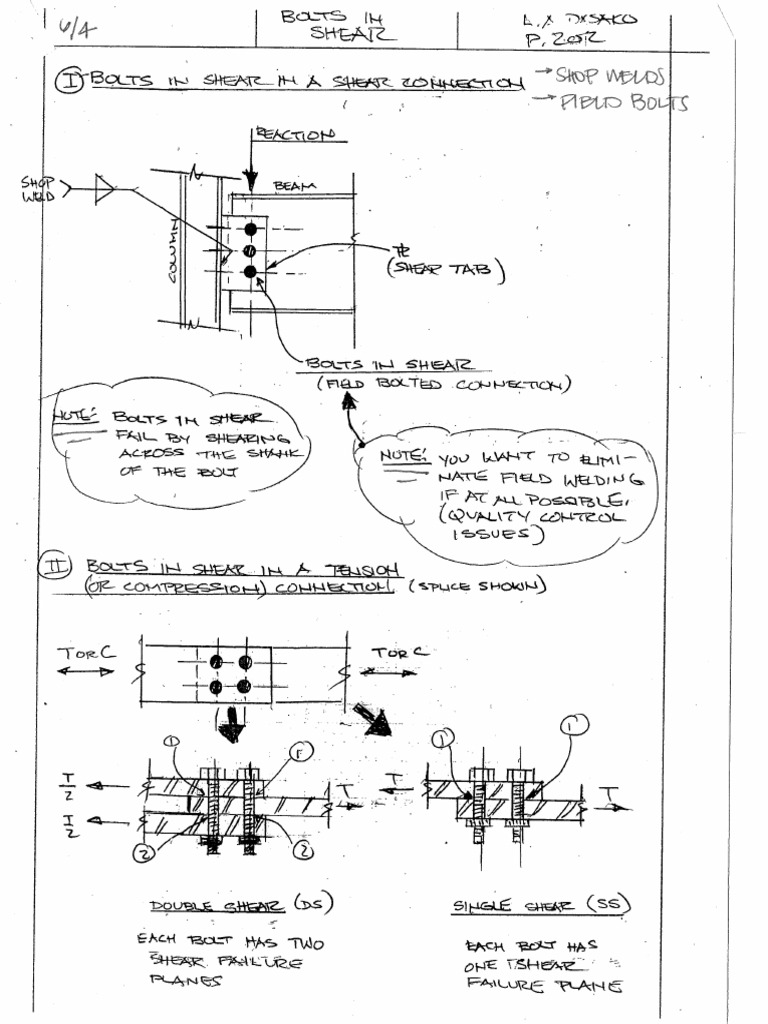 4/4
BOLTS IN
SHEAR
P. 202
I BOLTS IN SHEAR IN A SHEAR CONNECTION
→ SHOP WELDS
→ FIELD BOLTS
REACTION
SHOP
WELD
BEAM
COLUMN
PL
(SHEAR TAB)
BOLTS IN SHEAR
(FIELD BOLTED CONNECTION)
NOTE: BOLTS IN SHEAR
FAIL BY SHEARING
ACROSS THE SHANK
OF THE BOLT
NOTE: YOU WANT TO ELIMI-
NATE FIELD WELDING
IF AT ALL POSSIBLE.
(QUALITY CONTROL
ISSUES)
II BOLTS IN SHEAR IN A TENSION
(OR COMPRESSION) CONNECTION (SPLICE SHOWN)
T OR C
T OR C
1
1
T/2
T
T/2
2
2
1
1
T
T
DOUBLE SHEAR (DS)
EACH BOLT HAS TWO
SHEAR FAILURE
PLANES
SINGLE SHEAR (SS)
EACH BOLT HAS
ONE SHEAR
FAILURE PLANE